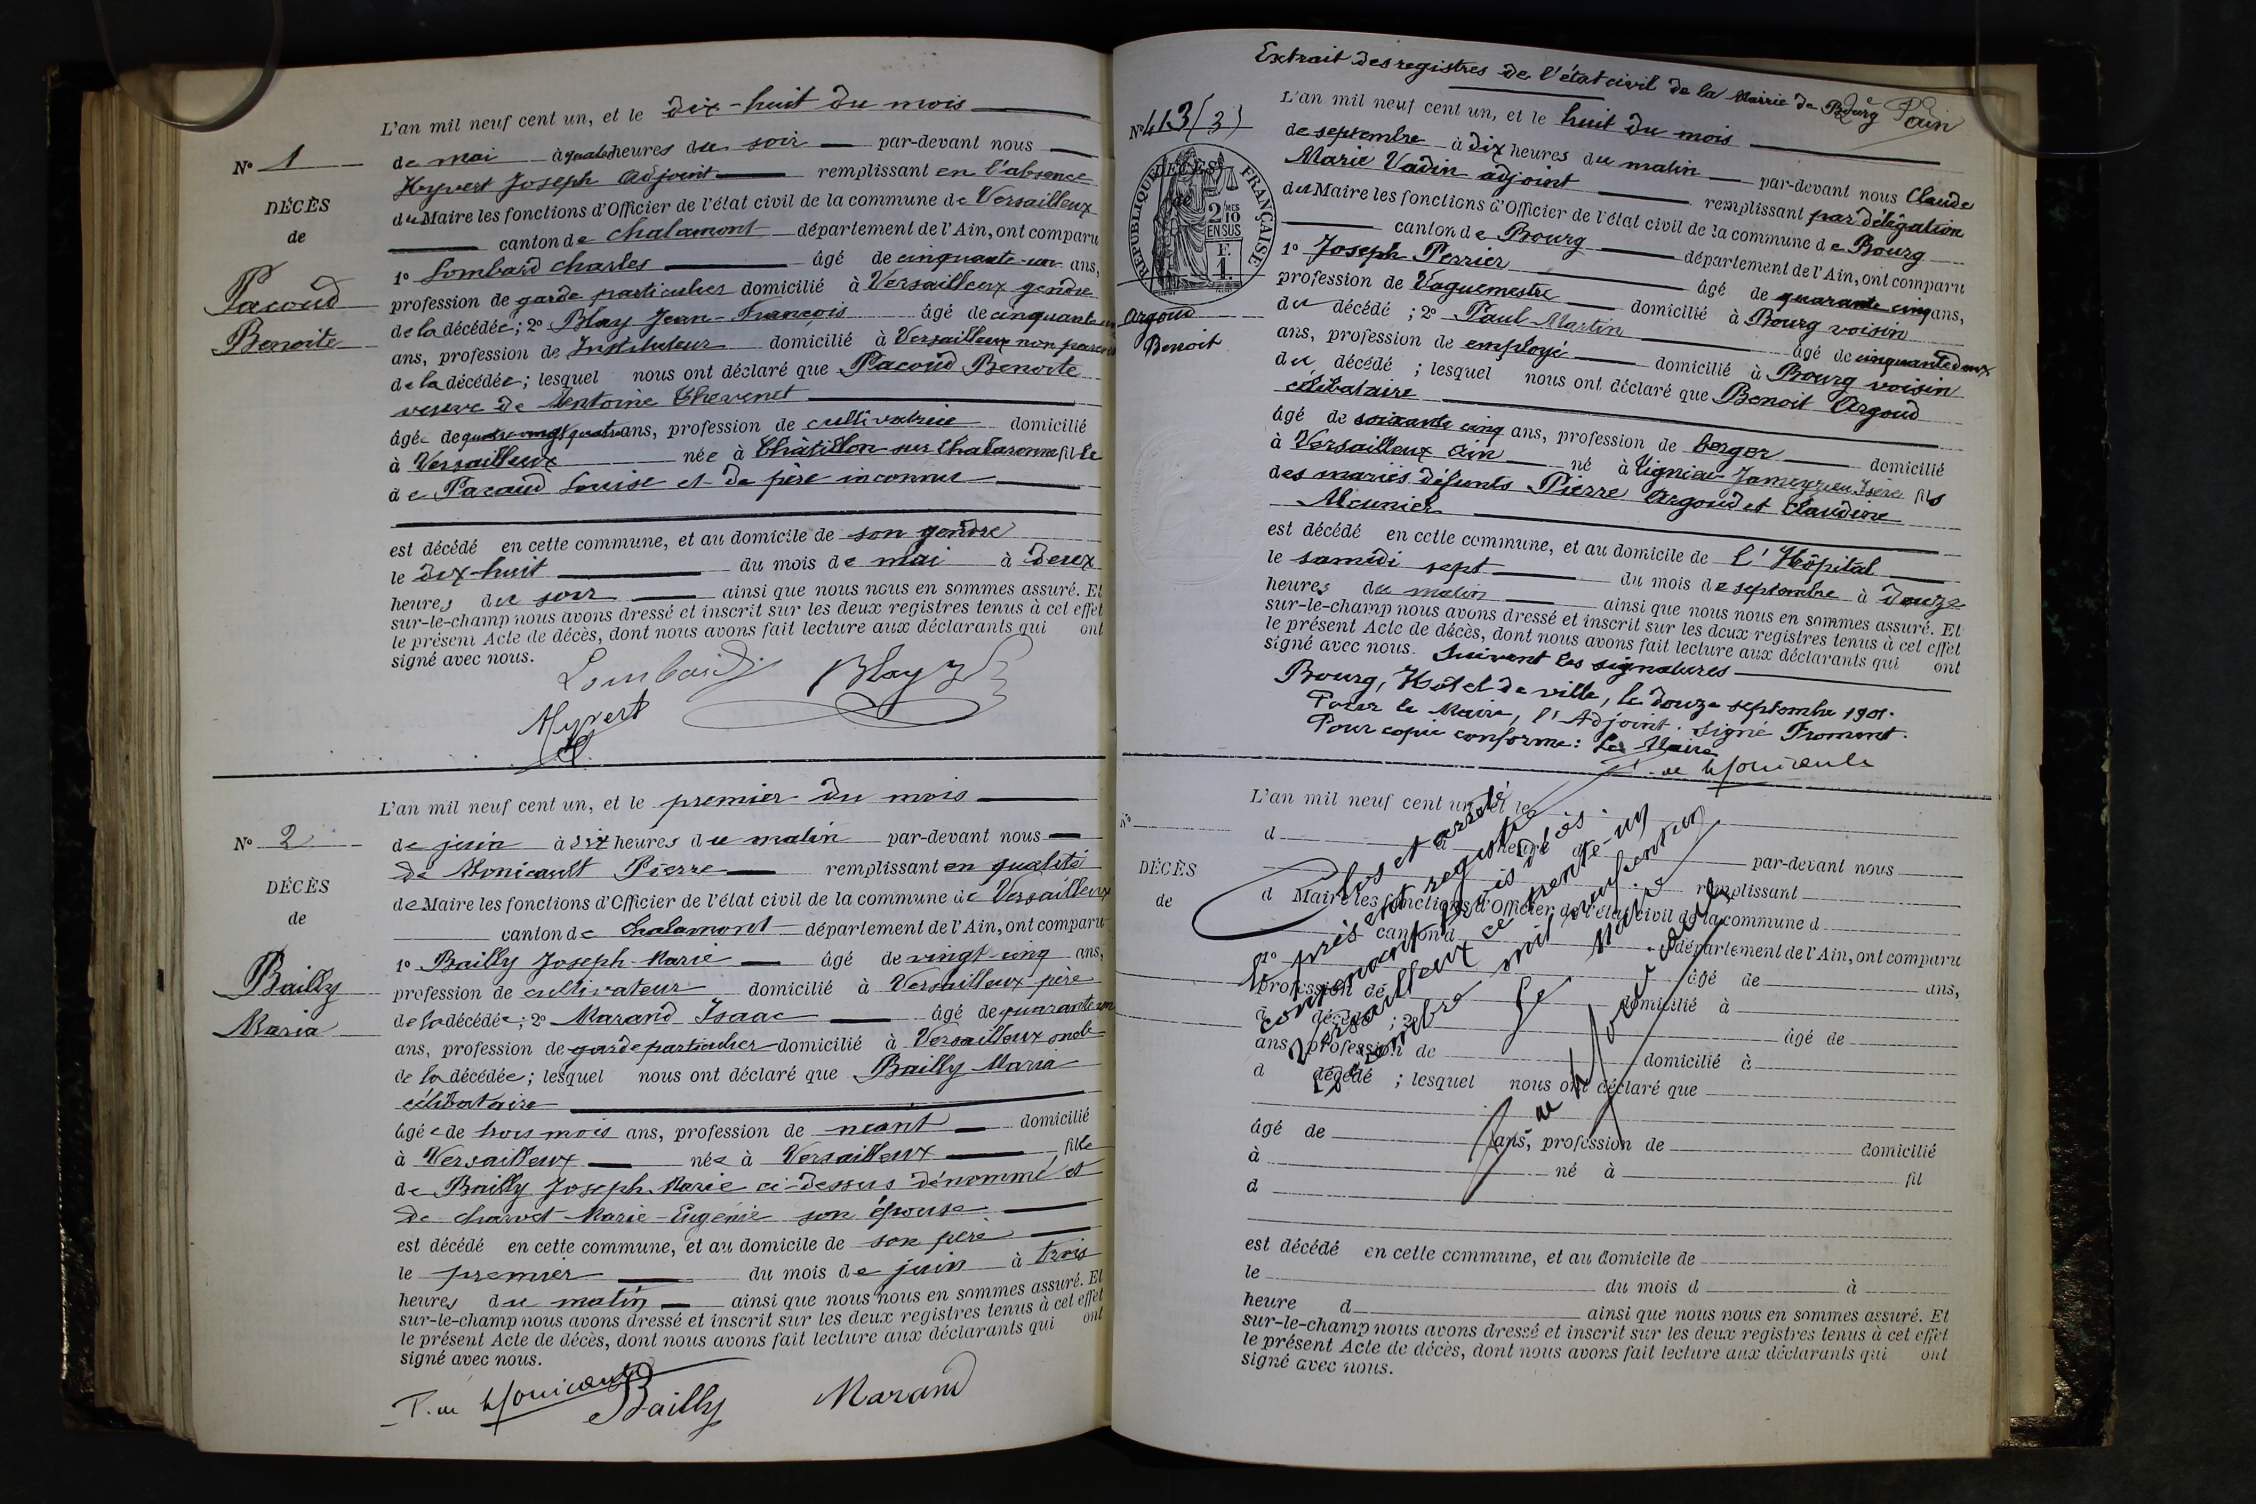 L'an mil neuf cent un, et le dix-huit du mois
N° 1
de mai à quatre heures du soir par-devant nous
Hyvert Joseph Adjoint remplissant en l'absence
DÉCÈS
du Maire les fonctions d'Officier de l'état civil de la commune de Versailleux
de
canton de Chalamont département de l'Ain, ont comparu
1° Lombard Charles âgé de cinquante-un ans,
Pacoud
profession de garde particulier domicilié à Versailleux gendre
Benoite
de la décédée; 2° Blay Jean-François âgé de cinquante un
ans, profession de Instituteur domicilié à Versailleux non parent
de la décédée; lesquel nous ont déclaré que Pacoud Benoite
veuve de Antoine Thevenet
âgée de quatre vingt quatre ans, profession de cultivatrice domicilié
à Versailleux née à Châtillon sur Chalaronne fille
de Pacaud Louise et de père inconnu
est décédé en cette commune, et au domicile de son gendre
le dix-huit du mois de mai à deux
heures du soir ainsi que nous nous en sommes assuré. Et
sur-le-champ nous avons dressé et inscrit sur les deux registres tenus à cet effet
le présent Acte de décès, dont nous avons fait lecture aux déclarants qui ont
signé avec nous.
Lombard Blay
Hyvert
L'an mil neuf cent un, et le premier du mois
N° 2
de juin à dix heures du matin par-devant nous
de Monicault Pierre remplissant en qualité
DÉCÈS
de Maire les fonctions d'Officier de l'état civil de la commune de Versailleux
de
canton de Chalamont département de l'Ain, ont comparu
1° Bailly Joseph-Marie âgé de vingt-cinq ans,
Bailly
profession de cultivateur domicilié à Versailleux père
Maria
de la décédée; 2° Marand Isaac âgé de quarante un
ans, profession de garde particulier domicilié à Versailleux oncle
de la décédée; lesquel nous ont déclaré que Bailly Maria
célibataire
âgée de trois mois ans, profession de néant domicilié
à Versailleux née à Versailleux fille
de Bailly Joseph Marie ci-dessus dénommé et
de Charvet Marie-Eugénie son épouse
est décédé en cette commune, et au domicile de son père
le premier du mois de juin à trois
heures du matin ainsi que nous nous en sommes assuré. Et
sur-le-champ nous avons dressé et inscrit sur les deux registres tenus à cet effet
le présent Acte de décès, dont nous avons fait lecture aux déclarants qui ont
signé avec nous.
P. de Monicault Bailly Marand
Extrait des registres de l'état civil de la Mairie de Bourg Ain
L'an mil neuf cent un, et le huit du mois
N° 413 (3)
de septembre à dix heures du matin par-devant nous Claude
Marie Vadin adjoint remplissant par délégation
DÉCÈS
de
RÉPUBLIQUE FRANÇAISE
2/10 EN SUS
F. 1.
du Maire les fonctions d'Officier de l'état civil de la commune de Bourg
canton de Bourg département de l'Ain, ont comparu
1° Joseph Perrier âgé de quarante cinq ans,
profession de Vaguemestre domicilié à Bourg voisin
Argoud
du décédé; 2° Paul Martin âgé de cinquante deux
Benoit
ans, profession de employé domicilié à Bourg voisin
du décédé; lesquel nous ont déclaré que Benoit Argoud
célibataire
âgé de soixante cinq ans, profession de berger domicilié
à Versailleux Ain né à Optevoz fils
des mariés défunts Pierre Argoud et Claudine
Meunier
est décédé en cette commune, et au domicile de l'Hôpital
le samedi sept du mois de septembre à douze
heures du matin ainsi que nous nous en sommes assuré. Et
sur-le-champ nous avons dressé et inscrit sur les deux registres tenus à cet effet
le présent Acte de décès, dont nous avons fait lecture aux déclarants qui ont
signé avec nous. Suivent les signatures
Bourg, Hôtel de ville, le douze septembre 1901.
Pour le Maire, l'Adjoint. Signé Fromont.
Pour copie conforme: Le Maire
P. de Monicault
L'an mil neuf cent un, et le
N°
d à heure d par-devant nous
remplissant
DÉCÈS
d Maire les fonctions d'Officier de l'état civil de la commune d
de
canton d département de l'Ain, ont comparu
1° âgé de ans,
profession de domicilié à
d décédé; 2° âgé de
ans, profession de domicilié à
d décédé; lesquel nous ont déclaré que
âgé de ans, profession de domicilié
à né à fil
d
est décédé en cette commune, et au domicile de
le du mois d à
heure d ainsi que nous nous en sommes assuré. Et
sur-le-champ nous avons dressé et inscrit sur les deux registres tenus à cet effet
le présent Acte de décès, dont nous avons fait lecture aux déclarants qui ont
signé avec nous.
Clos et arrêté
le présent registre
contenant trois décès.
Versailleux ce trente-un
décembre mil neuf cent un
Le Maire
P. de Monicault